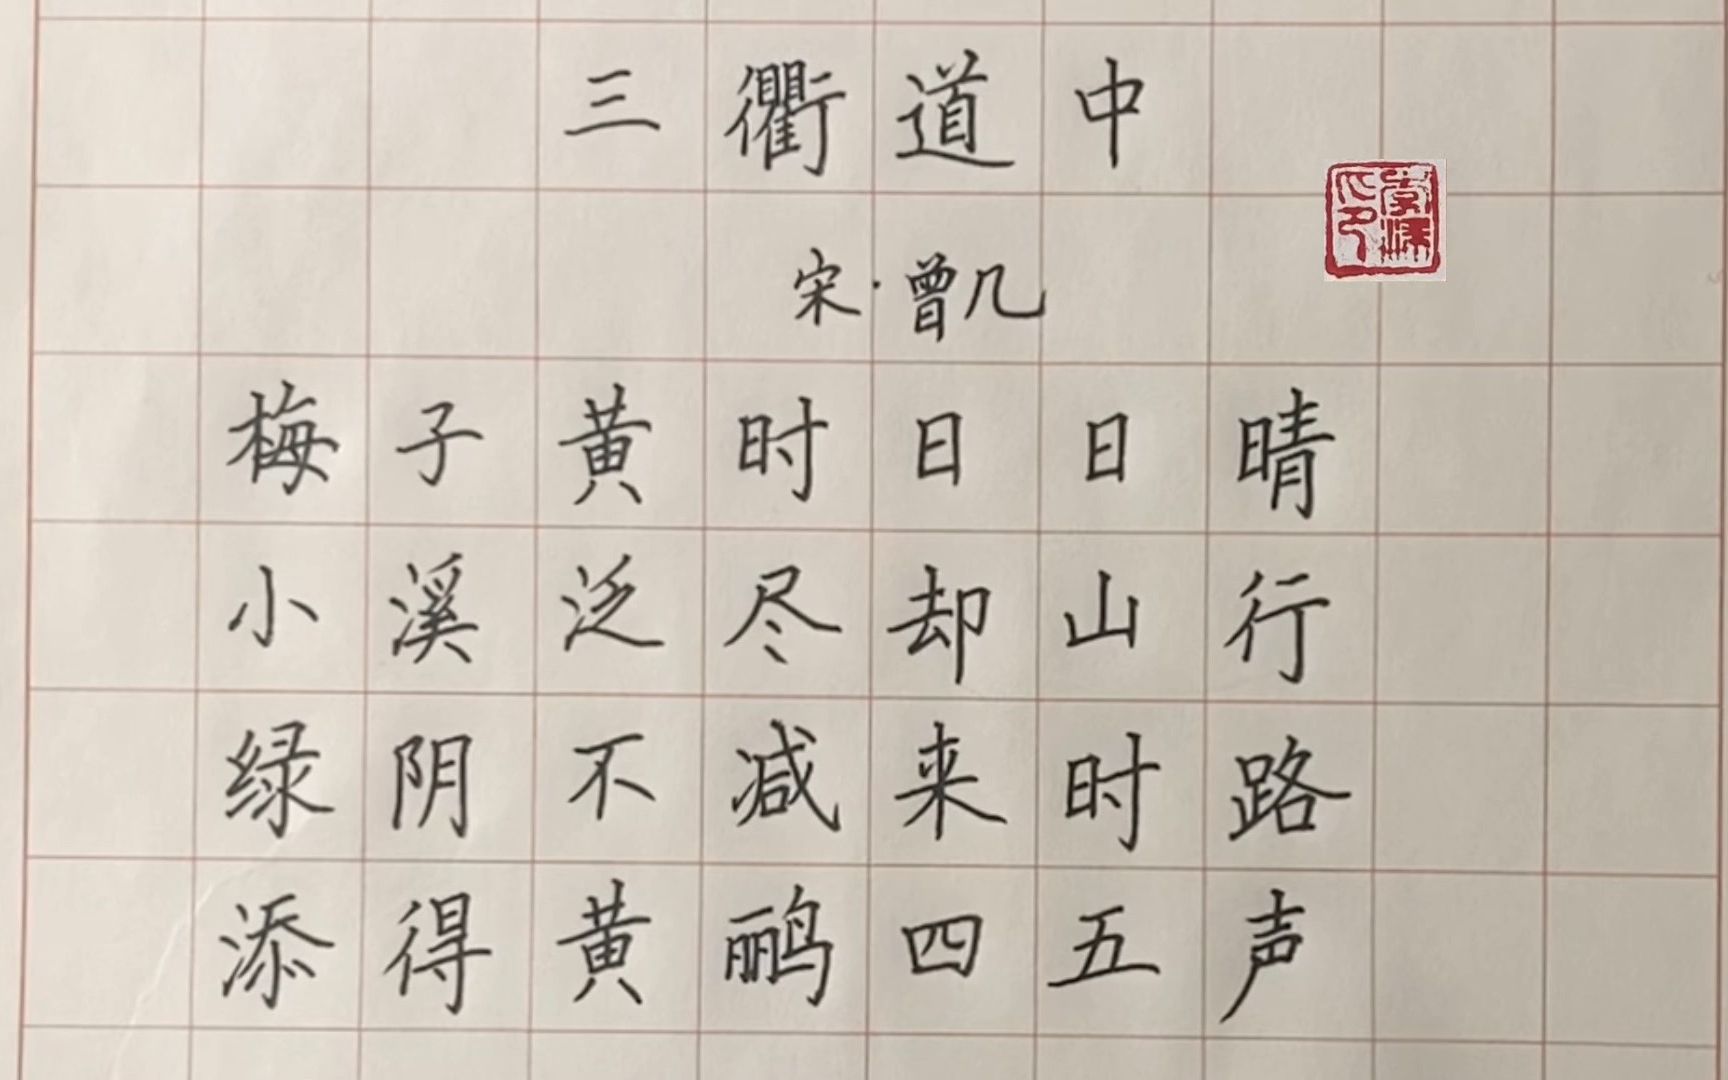 三衢道中
宋·曾几
梅子黄时日日晴
小溪泛尽却山行
绿阴不减来时路
添得黄鹂四五声